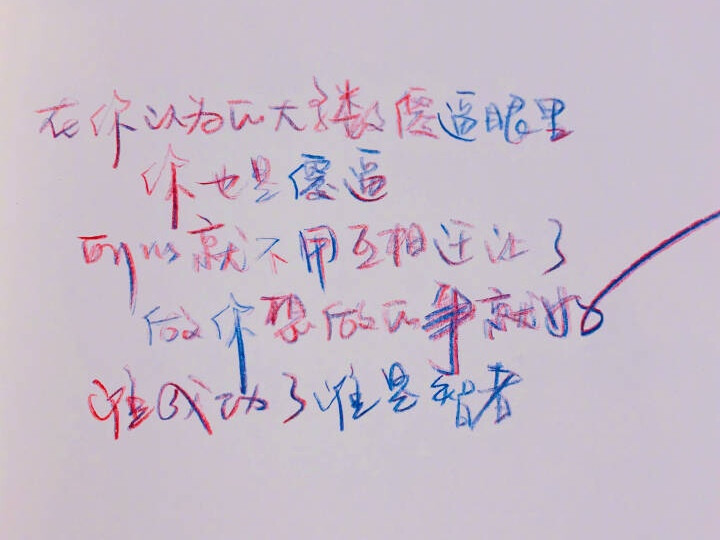 在你认为的大多数傻逼眼里
你也是傻逼
所以就不用互相迁让了
做你想做的事就好
谁成功了谁是智者